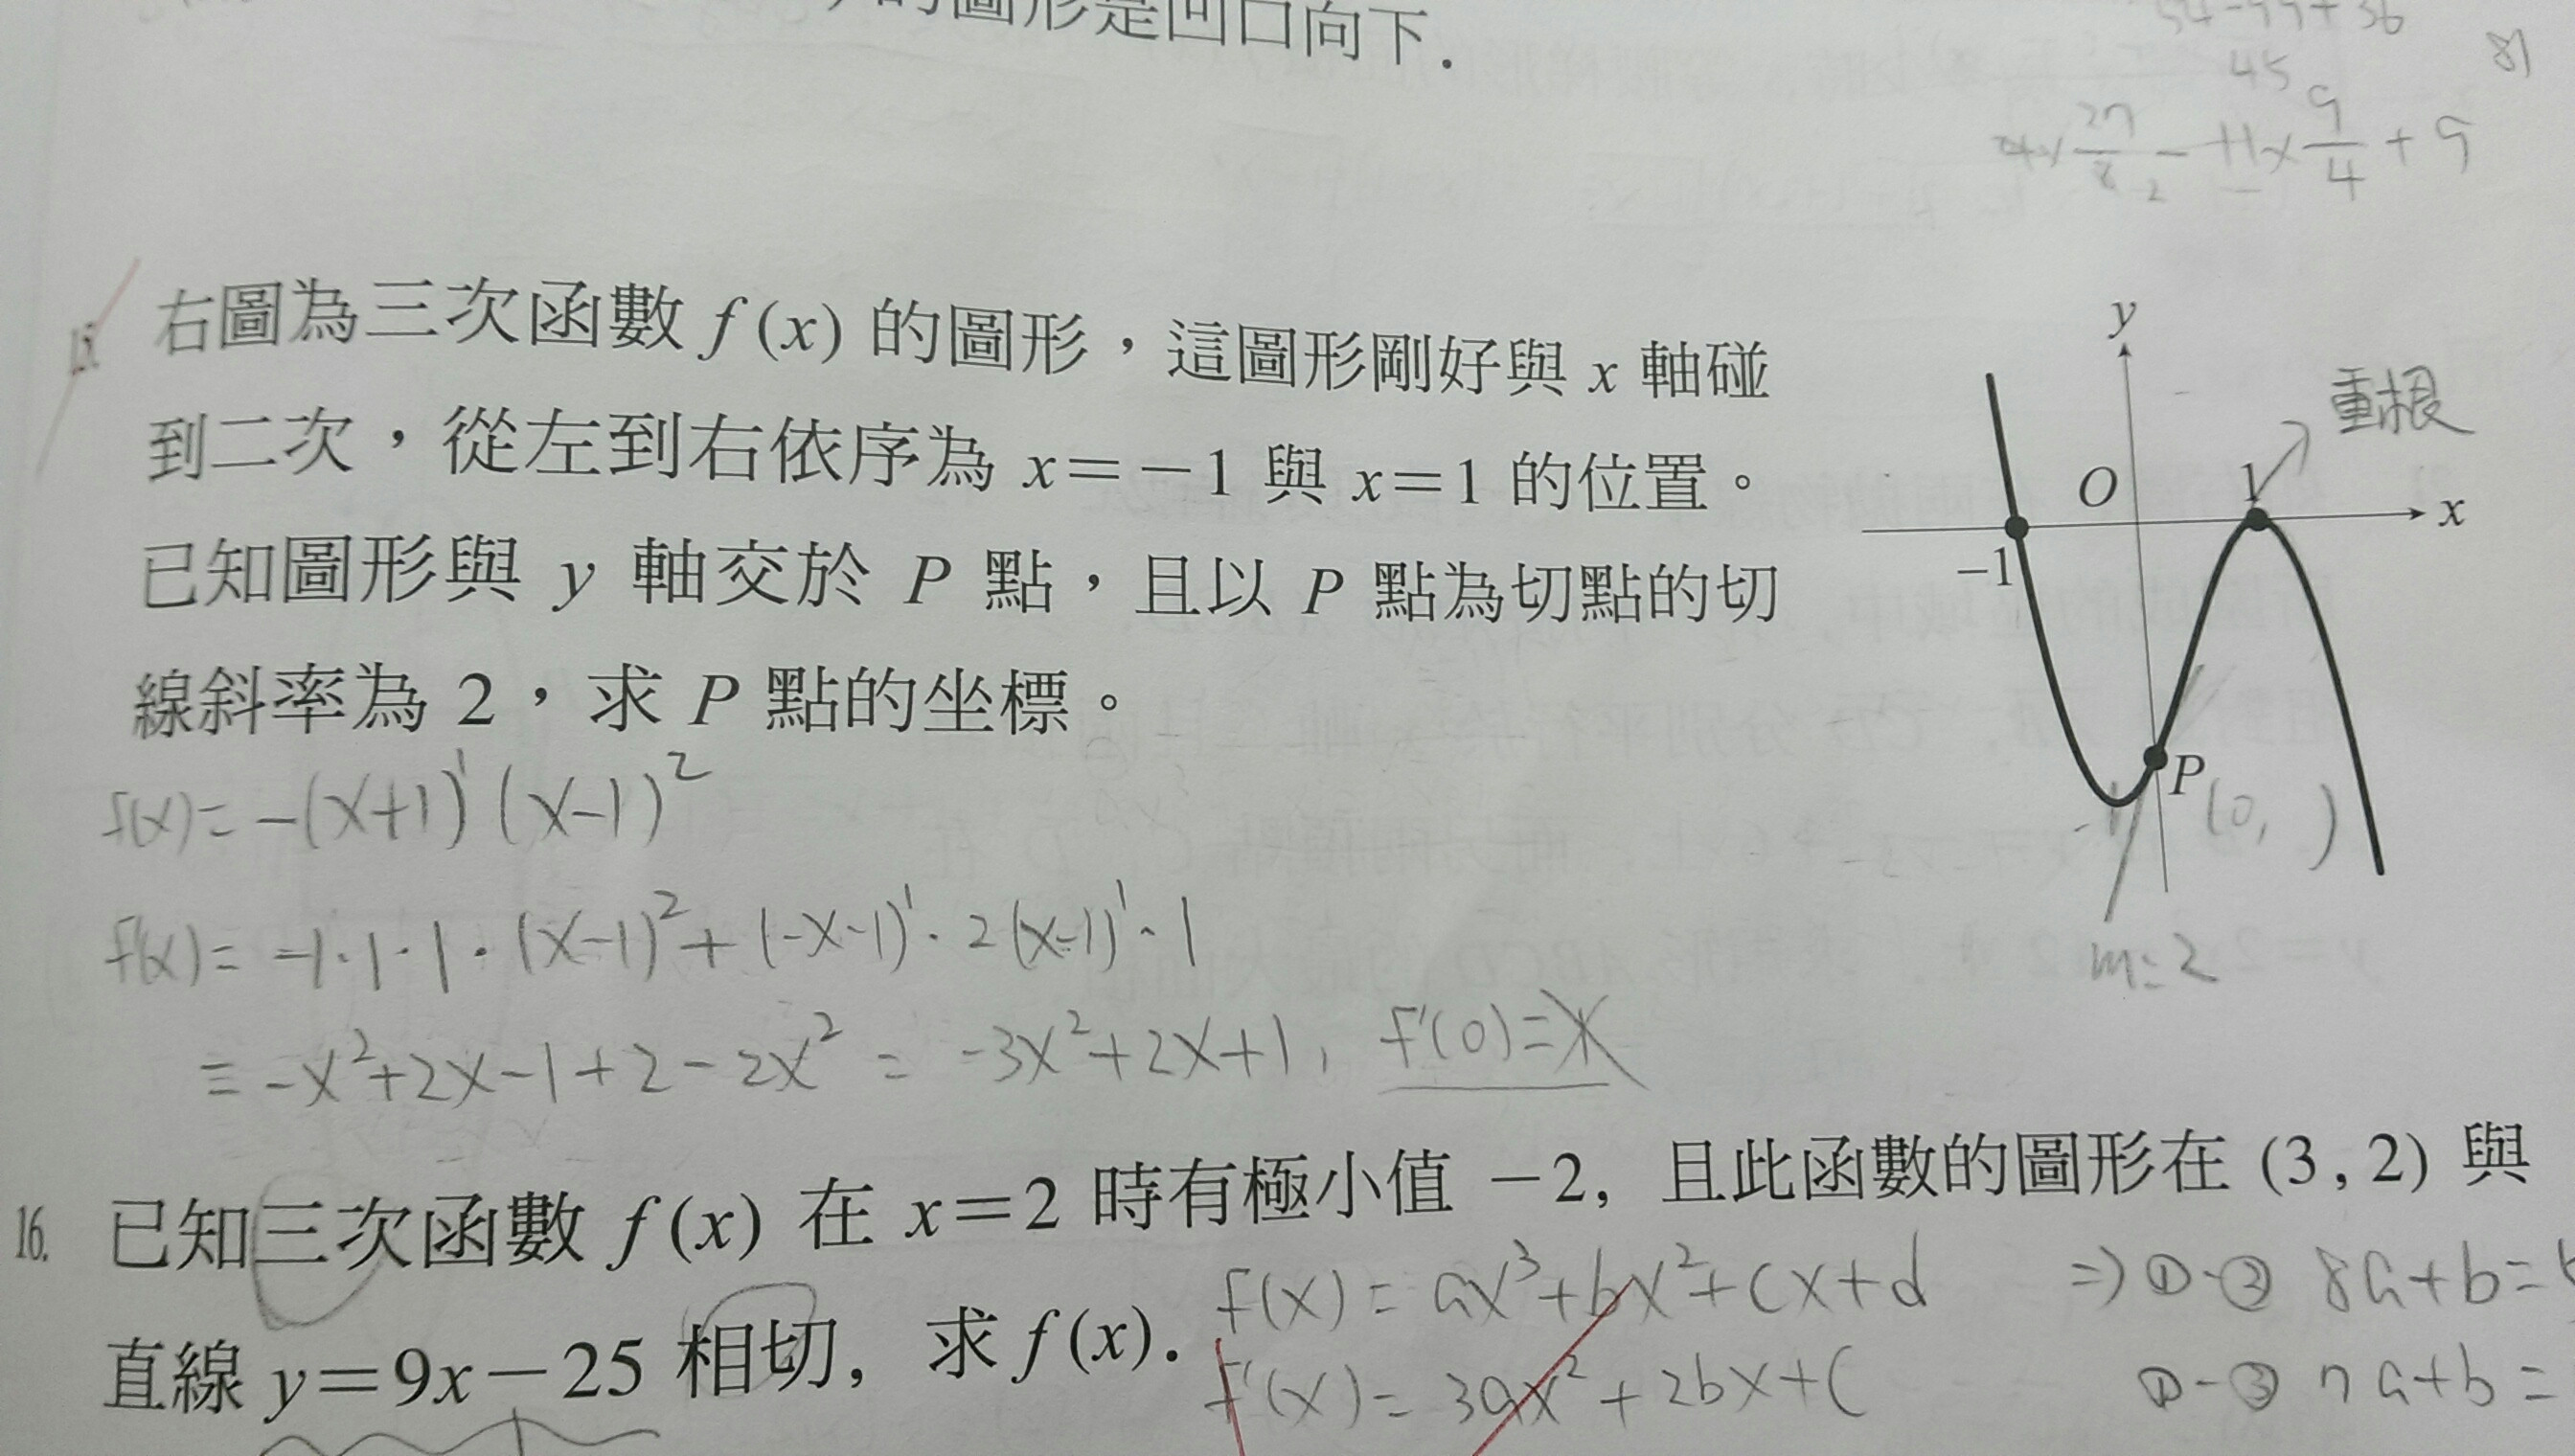 的圖形是凹口向下.
45
81
27/8 - 11x 9/4 + 9
15. 右圖為三次函數 f(x) 的圖形，這圖形剛好與 x 軸碰
到二次，從左到右依序為 x=-1 與 x=1 的位置。
已知圖形與 y 軸交於 P 點，且以 P 點為切點的切
線斜率為 2，求 P 點的坐標。
y
重根
O
1
x
-1
P
(0, )
-1
m=2
f(x)= -(x+1)¹(x-1)²
f'(x)= -1·1·1·(x-1)²+(-x-1)¹·2(x-1)¹·1
= -x²+2x-1+2-2x² = -3x²+2x+1, f'(0)=
16. 已知三次函數 f(x) 在 x=2 時有極小值 -2, 且此函數的圖形在 (3,2) 與
直線 y=9x-25 相切, 求 f(x).
f(x)= ax³+bx²+cx+d
⇒ ①-② 8a+b=
f'(x)= 3ax²+2bx+c
①-③ 7a+b=